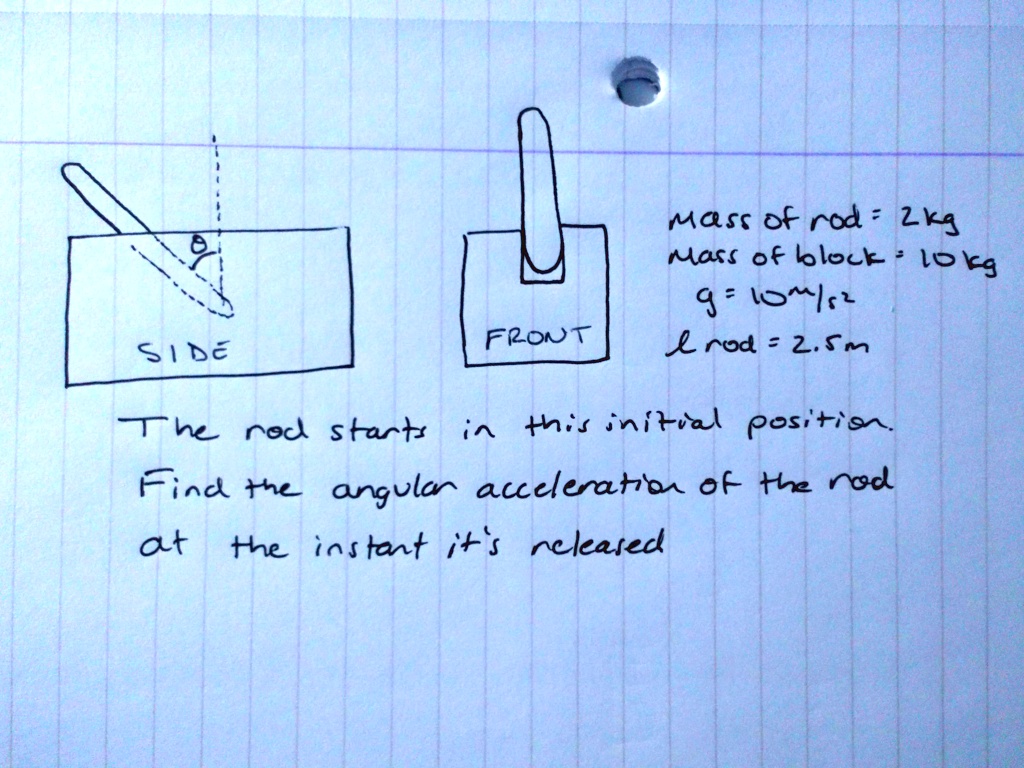 Mass of rod = 2kg
Mass of block = 10kg
g = 10m/s²
l rod = 2.5m
θ
SIDE
FRONT
The rod starts in this initial position.
Find the angular acceleration of the rod
at the instant it's released